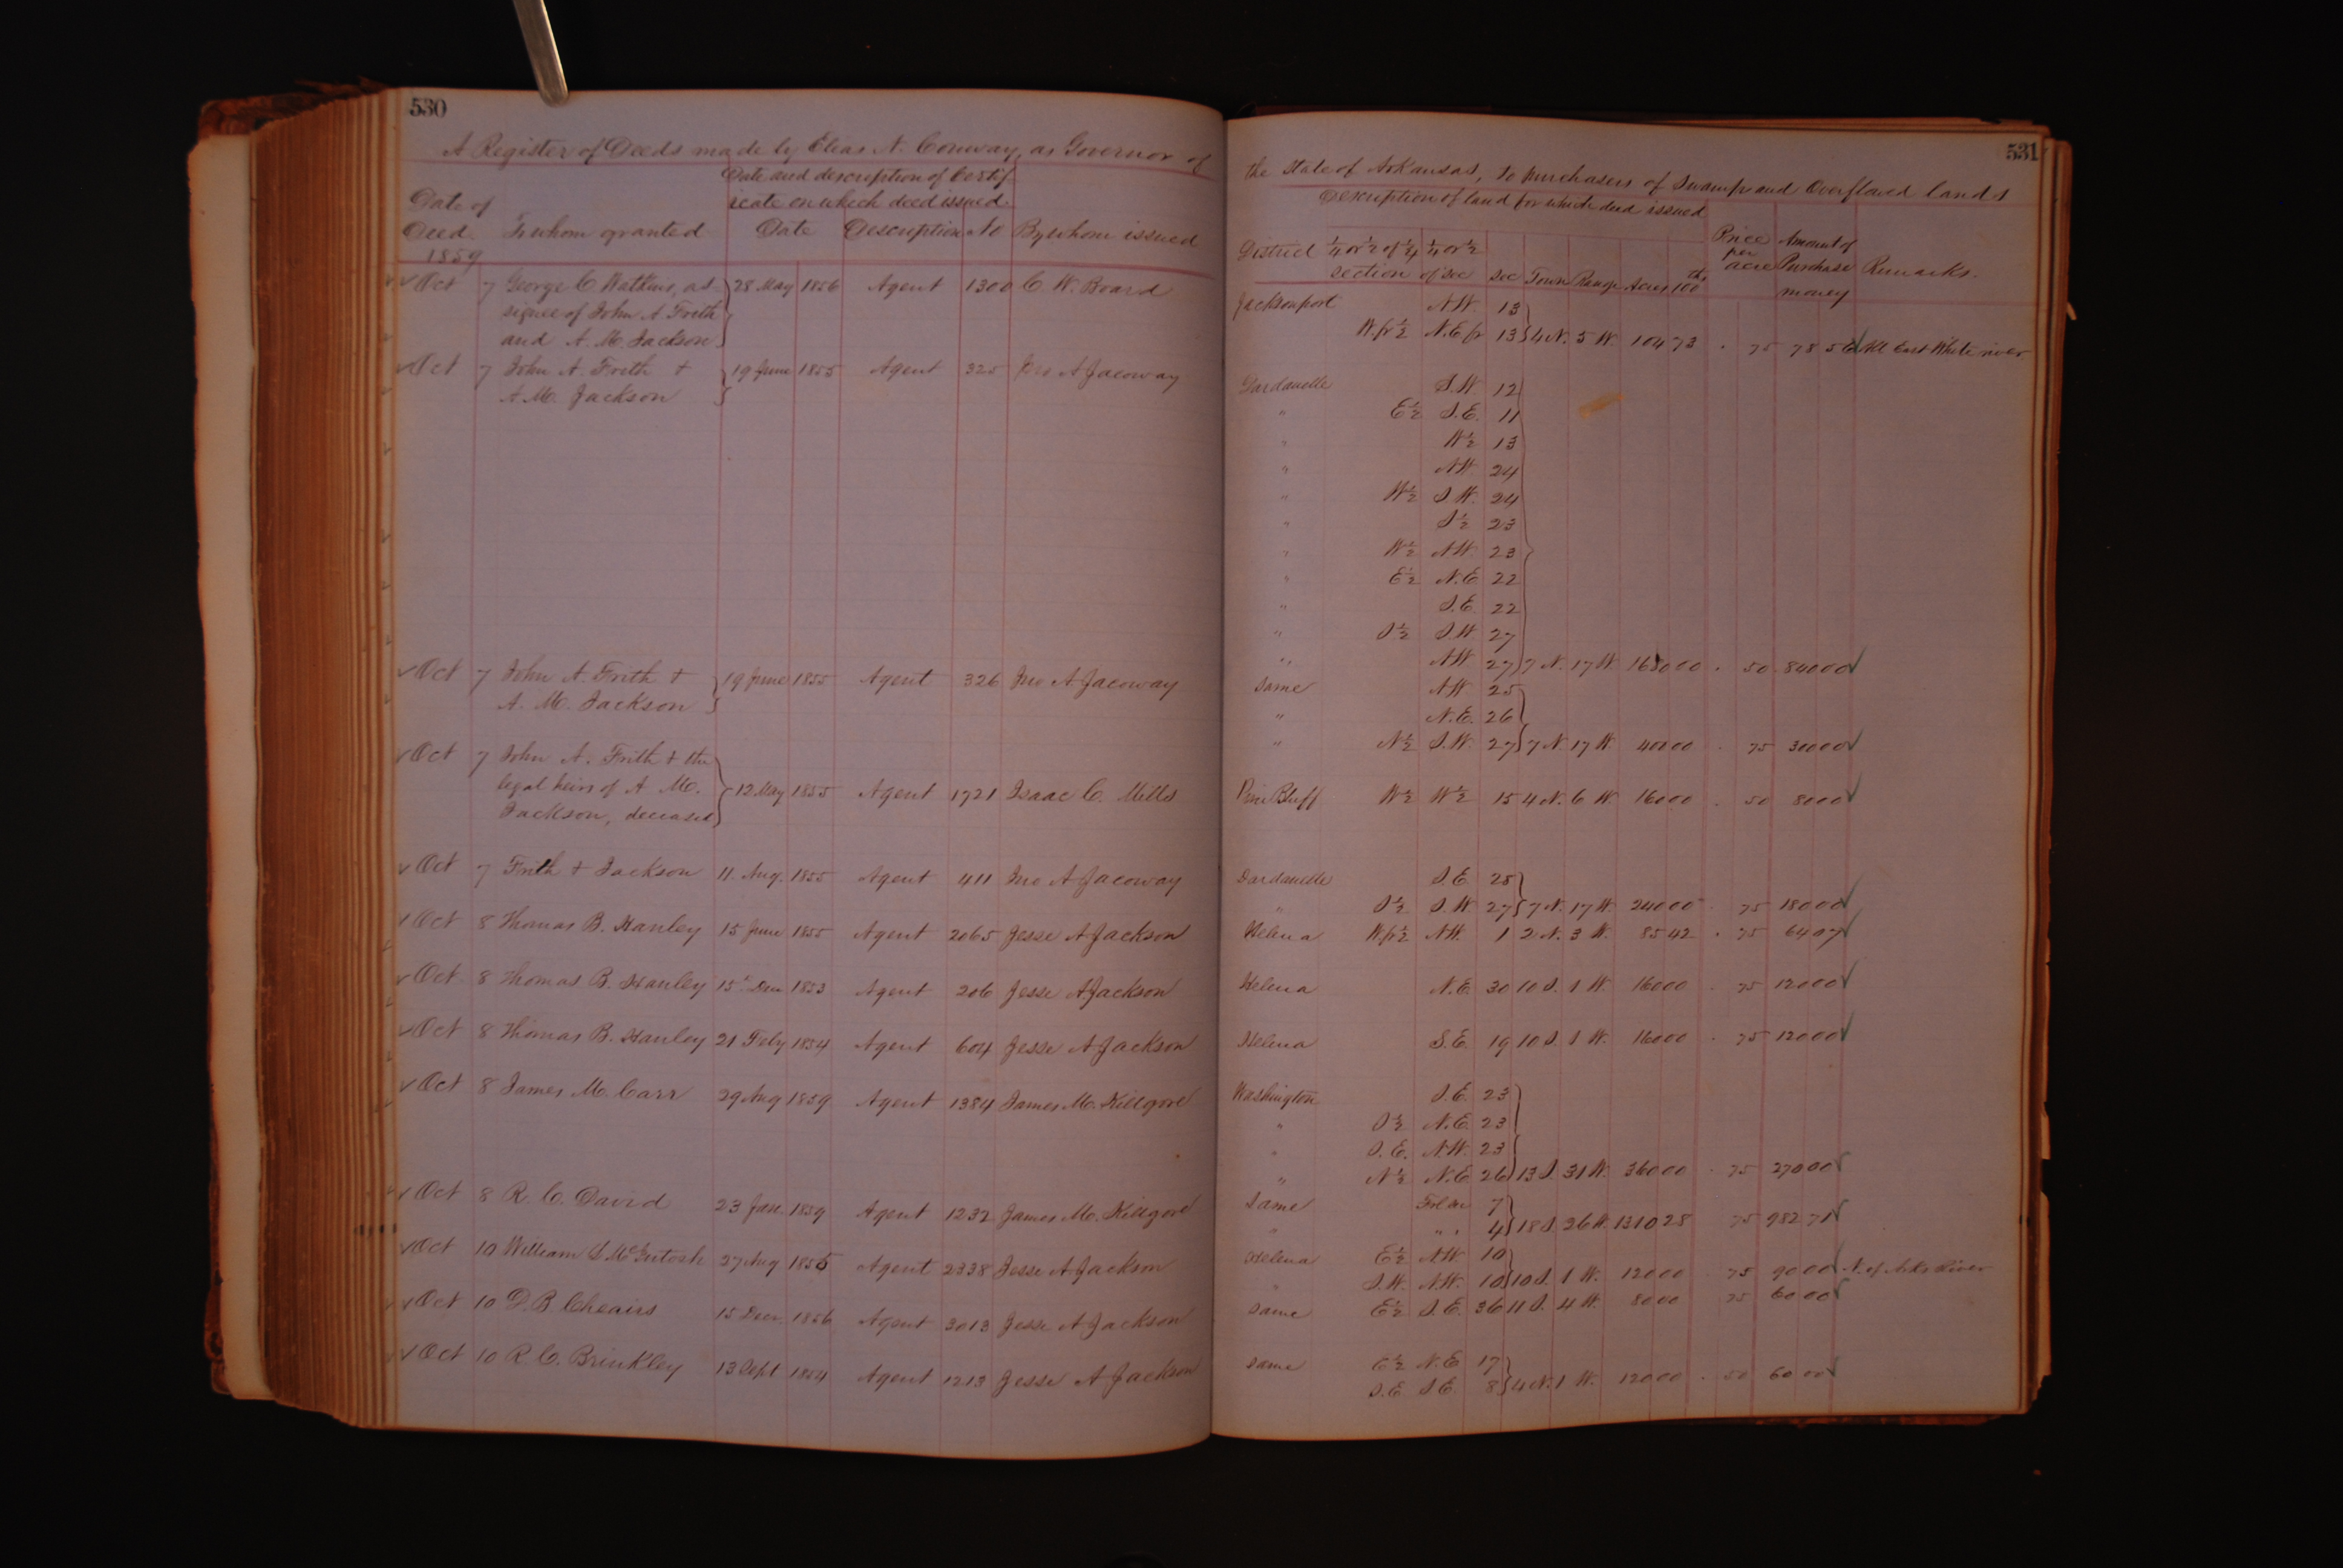 530
A Register of Deeds made by Elias N. Conway, as Governor of
Date and description of Certif-
icate on which deed issued
Date of
Deed. To whom granted Date Description No By whom issued
1859
Oct 7 George C Watkins, as- 28 May 1856 Agent 1300 C. W. Board
signee of John A Frith
and A. M. Jackson
Oct 7 John A. Frith + 19 June 1855 Agent 325 Jno A Jacoway
A. M. Jackson
Oct 7 John A. Frith + 19 June 1855 Agent 326 Jno A Jacoway
A. M. Jackson
Oct 7 John A. Frith + the
legal heirs of A M. 12 May 1855 Agent 1721 Isaac C. Mills
Jackson, deceased
Oct 7 Frith + Jackson 11. Aug. 1855 Agent 411 Jno A Jacoway
Oct 8 Thomas B. Hanley 15 June 1855 Agent 2065 Jesse A Jackson
Oct 8 Thomas B. Hanley 15th Dec 1853 Agent 206 Jesse A Jackson
Oct 8 Thomas B. Hanley 21 Feby 1854 Agent 604 Jesse A Jackson
Oct 8 James M. Carr 29 Aug 1859 Agent 1384 James M. Killgore
Oct 8 R. C. David 23 Jan. 1859 Agent 1232 James M. Killgore
Oct 10 William S. McIntosh 27 Aug 1855 Agent 2338 Jesse A Jackson
Oct 10 D. B Cheairs 15 Decr. 1856 Agent 3013 Jesse A Jackson
Oct 10 R. C. Brinkley 13 Sept 1854 Agent 1213 Jesse A Jackson
531
the State of Arkansas, to purchasers of Swamp and Overflowed lands
Description of land for which deed issued
District 1/4 or 1/2 of 1/4 1/4 or 1/2 Price Amount of
section of sec Sec Town Range Acres 100th per acre Purchase money Remarks.
Jacksonport N.W. 13
W. fr 1/2 N.E fr 13 4 N. 5 W. 104 73 . 75 78 56 All East White river
Dardanelle S.W. 12
" E 1/2 S.E. 11
" W 1/2 13
" N.W. 24
" W 1/2 S.W. 24
" S 1/2 23
" W 1/2 N.W. 23
" E 1/2 N.E. 22
" S.E. 22
" S 1/2 S.W. 27
" N.W 27 7 N. 17 W. 1680 00 . 50 . 840 00
Same N.W 25
" N.E. 26
" N 1/2 S.W. 27 7 N. 17 W. 400 00 . 75 300 00
Pine Bluff W 1/2 W 1/2 15 4 N. 6 W. 160 00 . 50 80 00
Dardanelle S.E. 25
" S 1/2 S.W. 27 7 N. 17 W. 240 00 . 75 180 00
Helena W. fr 1/2 N.W. 1 2 N. 3 W. 85 42 . 75 64 07
Helena N.E. 30 10 S. 1 W. 160 00 . 75 120 00
Helena S.E. 19 10 S 1 W. 160 00 . 75 120 00
Washington S.E. 23
" S 1/2 N.E. 23
" S.E. N.W. 23
" N 1/2 N.E 26 13 S. 31 W. 360 00 . 75 270 00
Same Frl 7
" " 4 18 S. 26 W. 1310 28 75 982 71
Helena E 1/2 N.W. 10
" S.W. N.W. 10 10 S. 1 W. 120 00 . 75 90 00 N. of Arks River
Same E 1/2 S.E. 36 11 S. 4 W. 80 00 75 60 00
Same E 1/2 N.E 17
S.E. S.E. 8 4 N. 1 W. 120 00 . 50 60 00